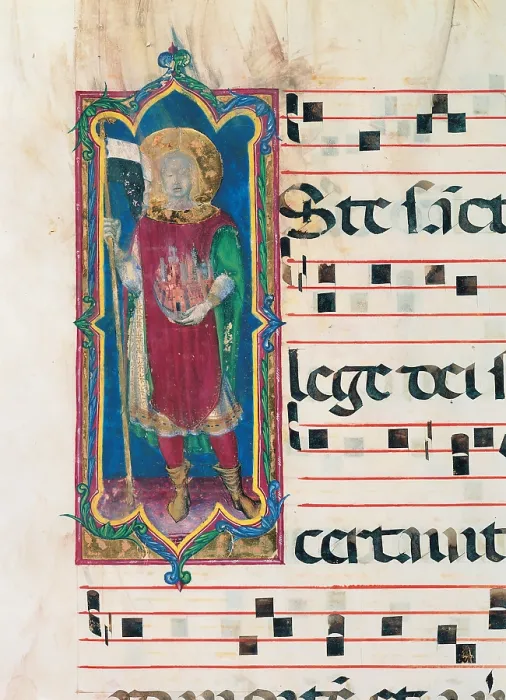 Ste sāct
lege dei s
certauit